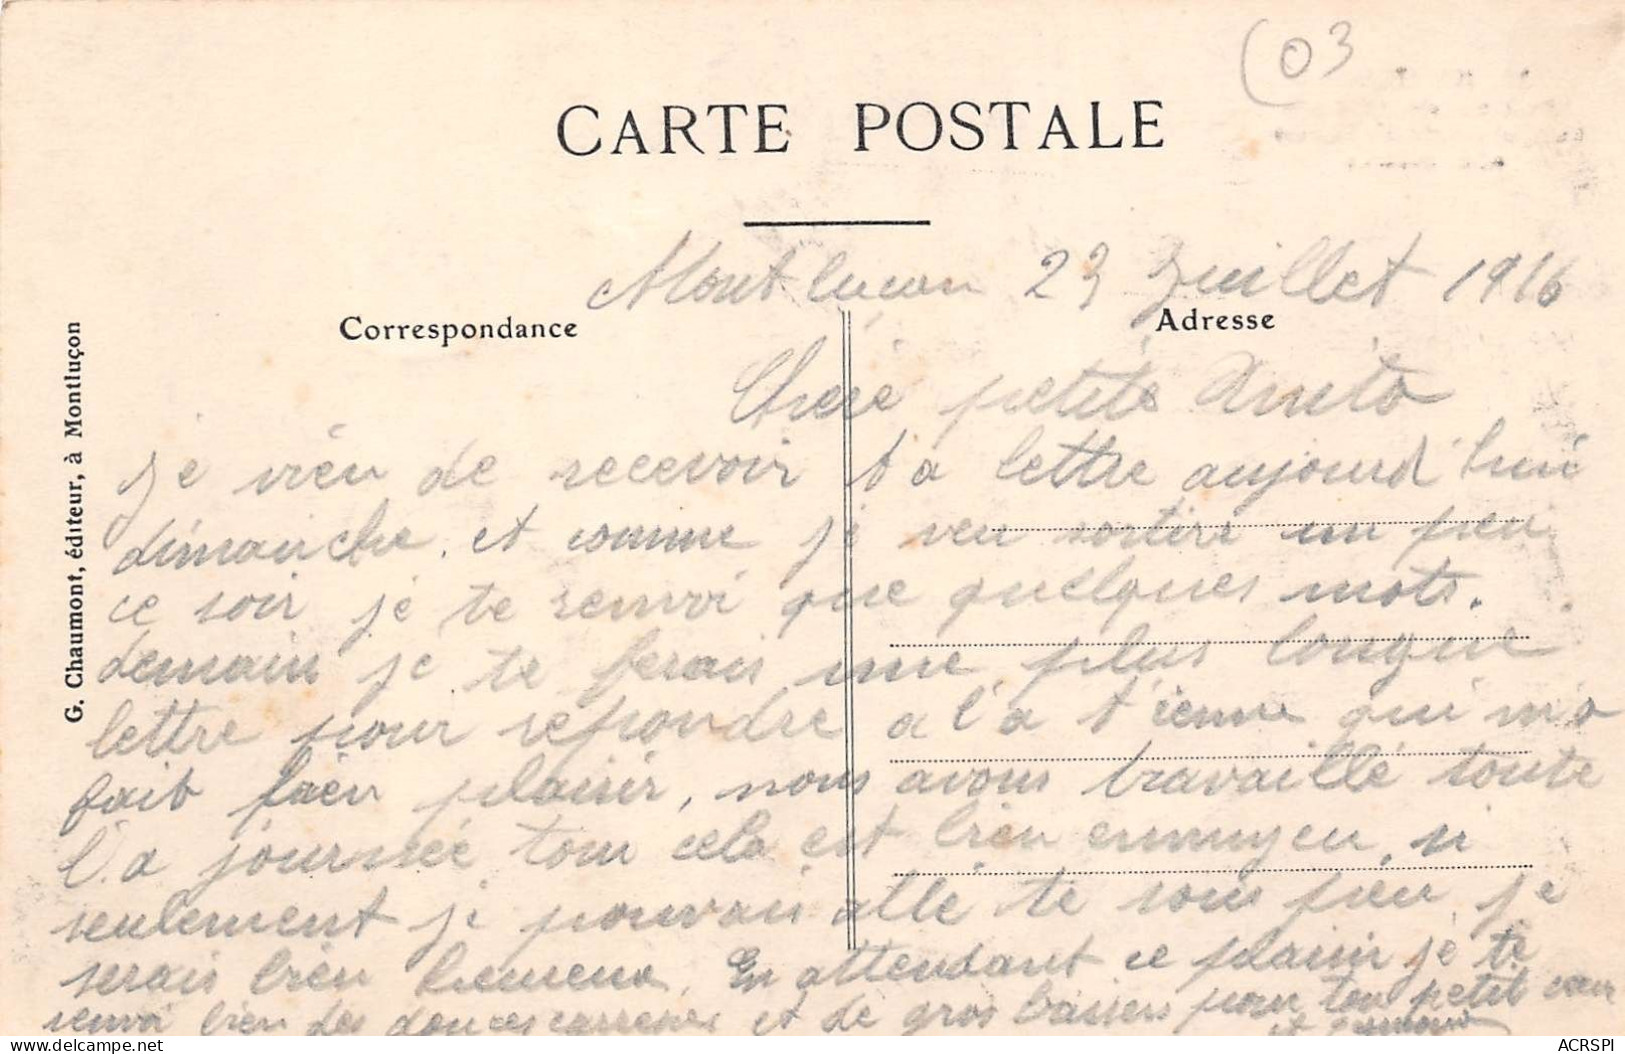 (03
CARTE POSTALE
Montluçon 23 Juillet 1916
Correspondance
Adresse
G. Chaumont, éditeur, à Montluçon
Chere petite
Je vien de recevoir ta lettre aujourd'hui
dimanche, et comme je veu sortire un peu
ce soir je te renvoi que quelques mots.
demain je te ferais une plus longue
lettre pour repondre a la tienne qui m'a
fait bien plaisir, nous avons travaillé toute
la journée tou cela est bien ennuyeu, si
seulement je pouvais allé te vous peu, je
serais bien heureux. En attendant ce plaisir je te
renvoi bien des douces carresses et de gros baisers pour ton petit cœur
et
www.delcampe.net
ACRSPI